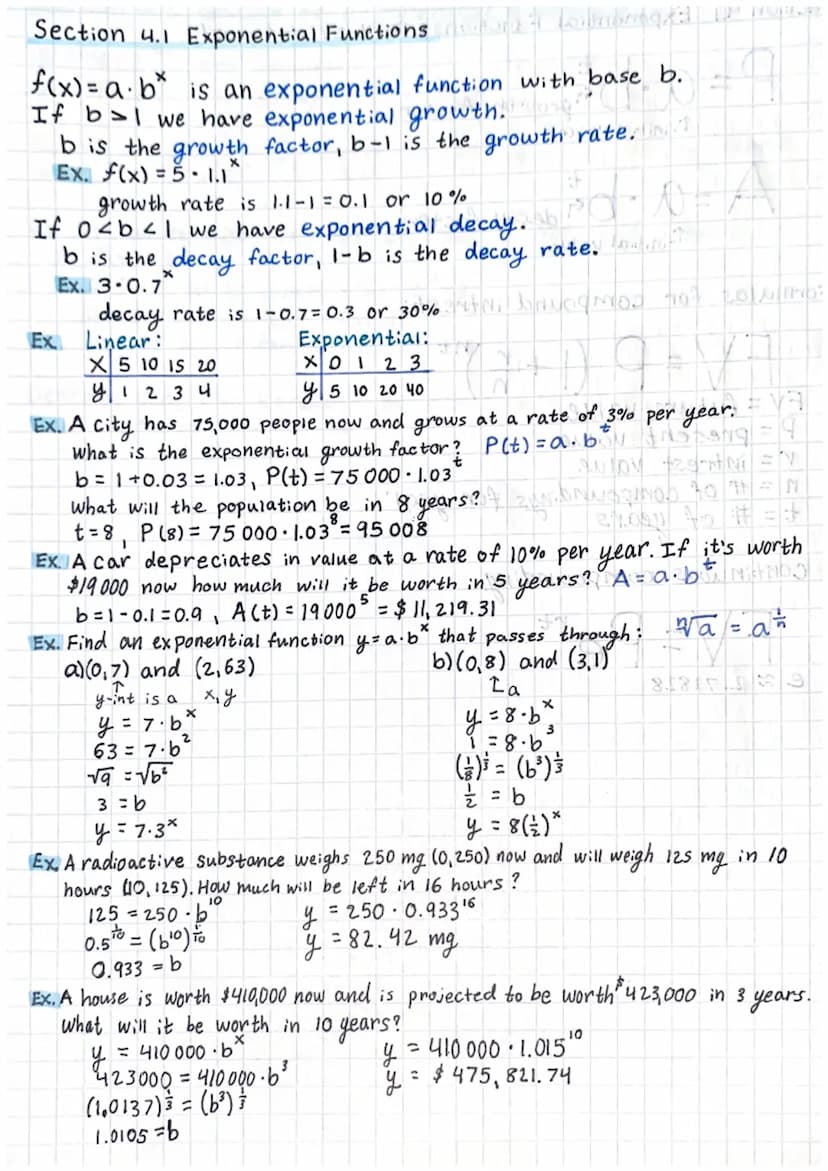 Section 4.1 Exponential Functions
f(x) = a · b^x is an exponential function with base b.
If b > 1 we have exponential growth.
b is the growth factor, b-1 is the growth rate.
Ex. f(x) = 5 · 1.1^x
growth rate is 1.1-1 = 0.1 or 10%
If 0<b<1 we have exponential decay.
b is the decay factor, 1-b is the decay rate.
Ex. 3·0.7^x
decay rate is 1-0.7=0.3 or 30%
Ex. Linear: Exponential:
X | 5 10 15 20 X | 0 1 2 3
y | 1 2 3 4 y | 5 10 20 40
Ex. A city has 75,000 people now and grows at a rate of 3% per year.
What is the exponential growth factor? P(t) = a·b^t
b = 1+0.03 = 1.03, P(t) = 75000 · 1.03^t
What will the population be in 8 years?
t=8, P(8) = 75 000 · 1.03^8 = 95 008
Ex. A car depreciates in value at a rate of 10% per year. If it's worth
$19000 now how much will it be worth in 5 years? A = a·b^t
b=1-0.1=0.9, A(t) = 19000^5 = $11,219.31
Ex. Find an exponential function y=a·b^x that passes through: ⁿ√a = a^(1/n)
a)(0,7) and (2,63) b)(0,8) and (3,1)
↑ ↑a
y-int is a x,y
y = 7·b^x y = 8·b^x
63 = 7·b^2 1 = 8·b^3
√9 = √b^2 (1/8)^(1/3) = (b^3)^(1/3)
3 = b 1/2 = b
y = 7·3^x y = 8(1/2)^x
Ex. A radioactive substance weighs 250 mg (0,250) now and will weigh 125 mg in 10
hours (10,125). How much will be left in 16 hours?
125 = 250 · b^10 y = 250 · 0.933^16
0.5^(1/10) = (b^10)^(1/10) y = 82.42 mg
0.933 = b
Ex. A house is worth $410,000 now and is projected to be worth $423,000 in 3 years.
What will it be worth in 10 years?
y = 410 000 · b^x y = 410 000 · 1.015^10
423000 = 410 000 · b^3 y = $475,821.74
(1,0137)^(1/3) = (b^3)^(1/3)
1.0105 = b